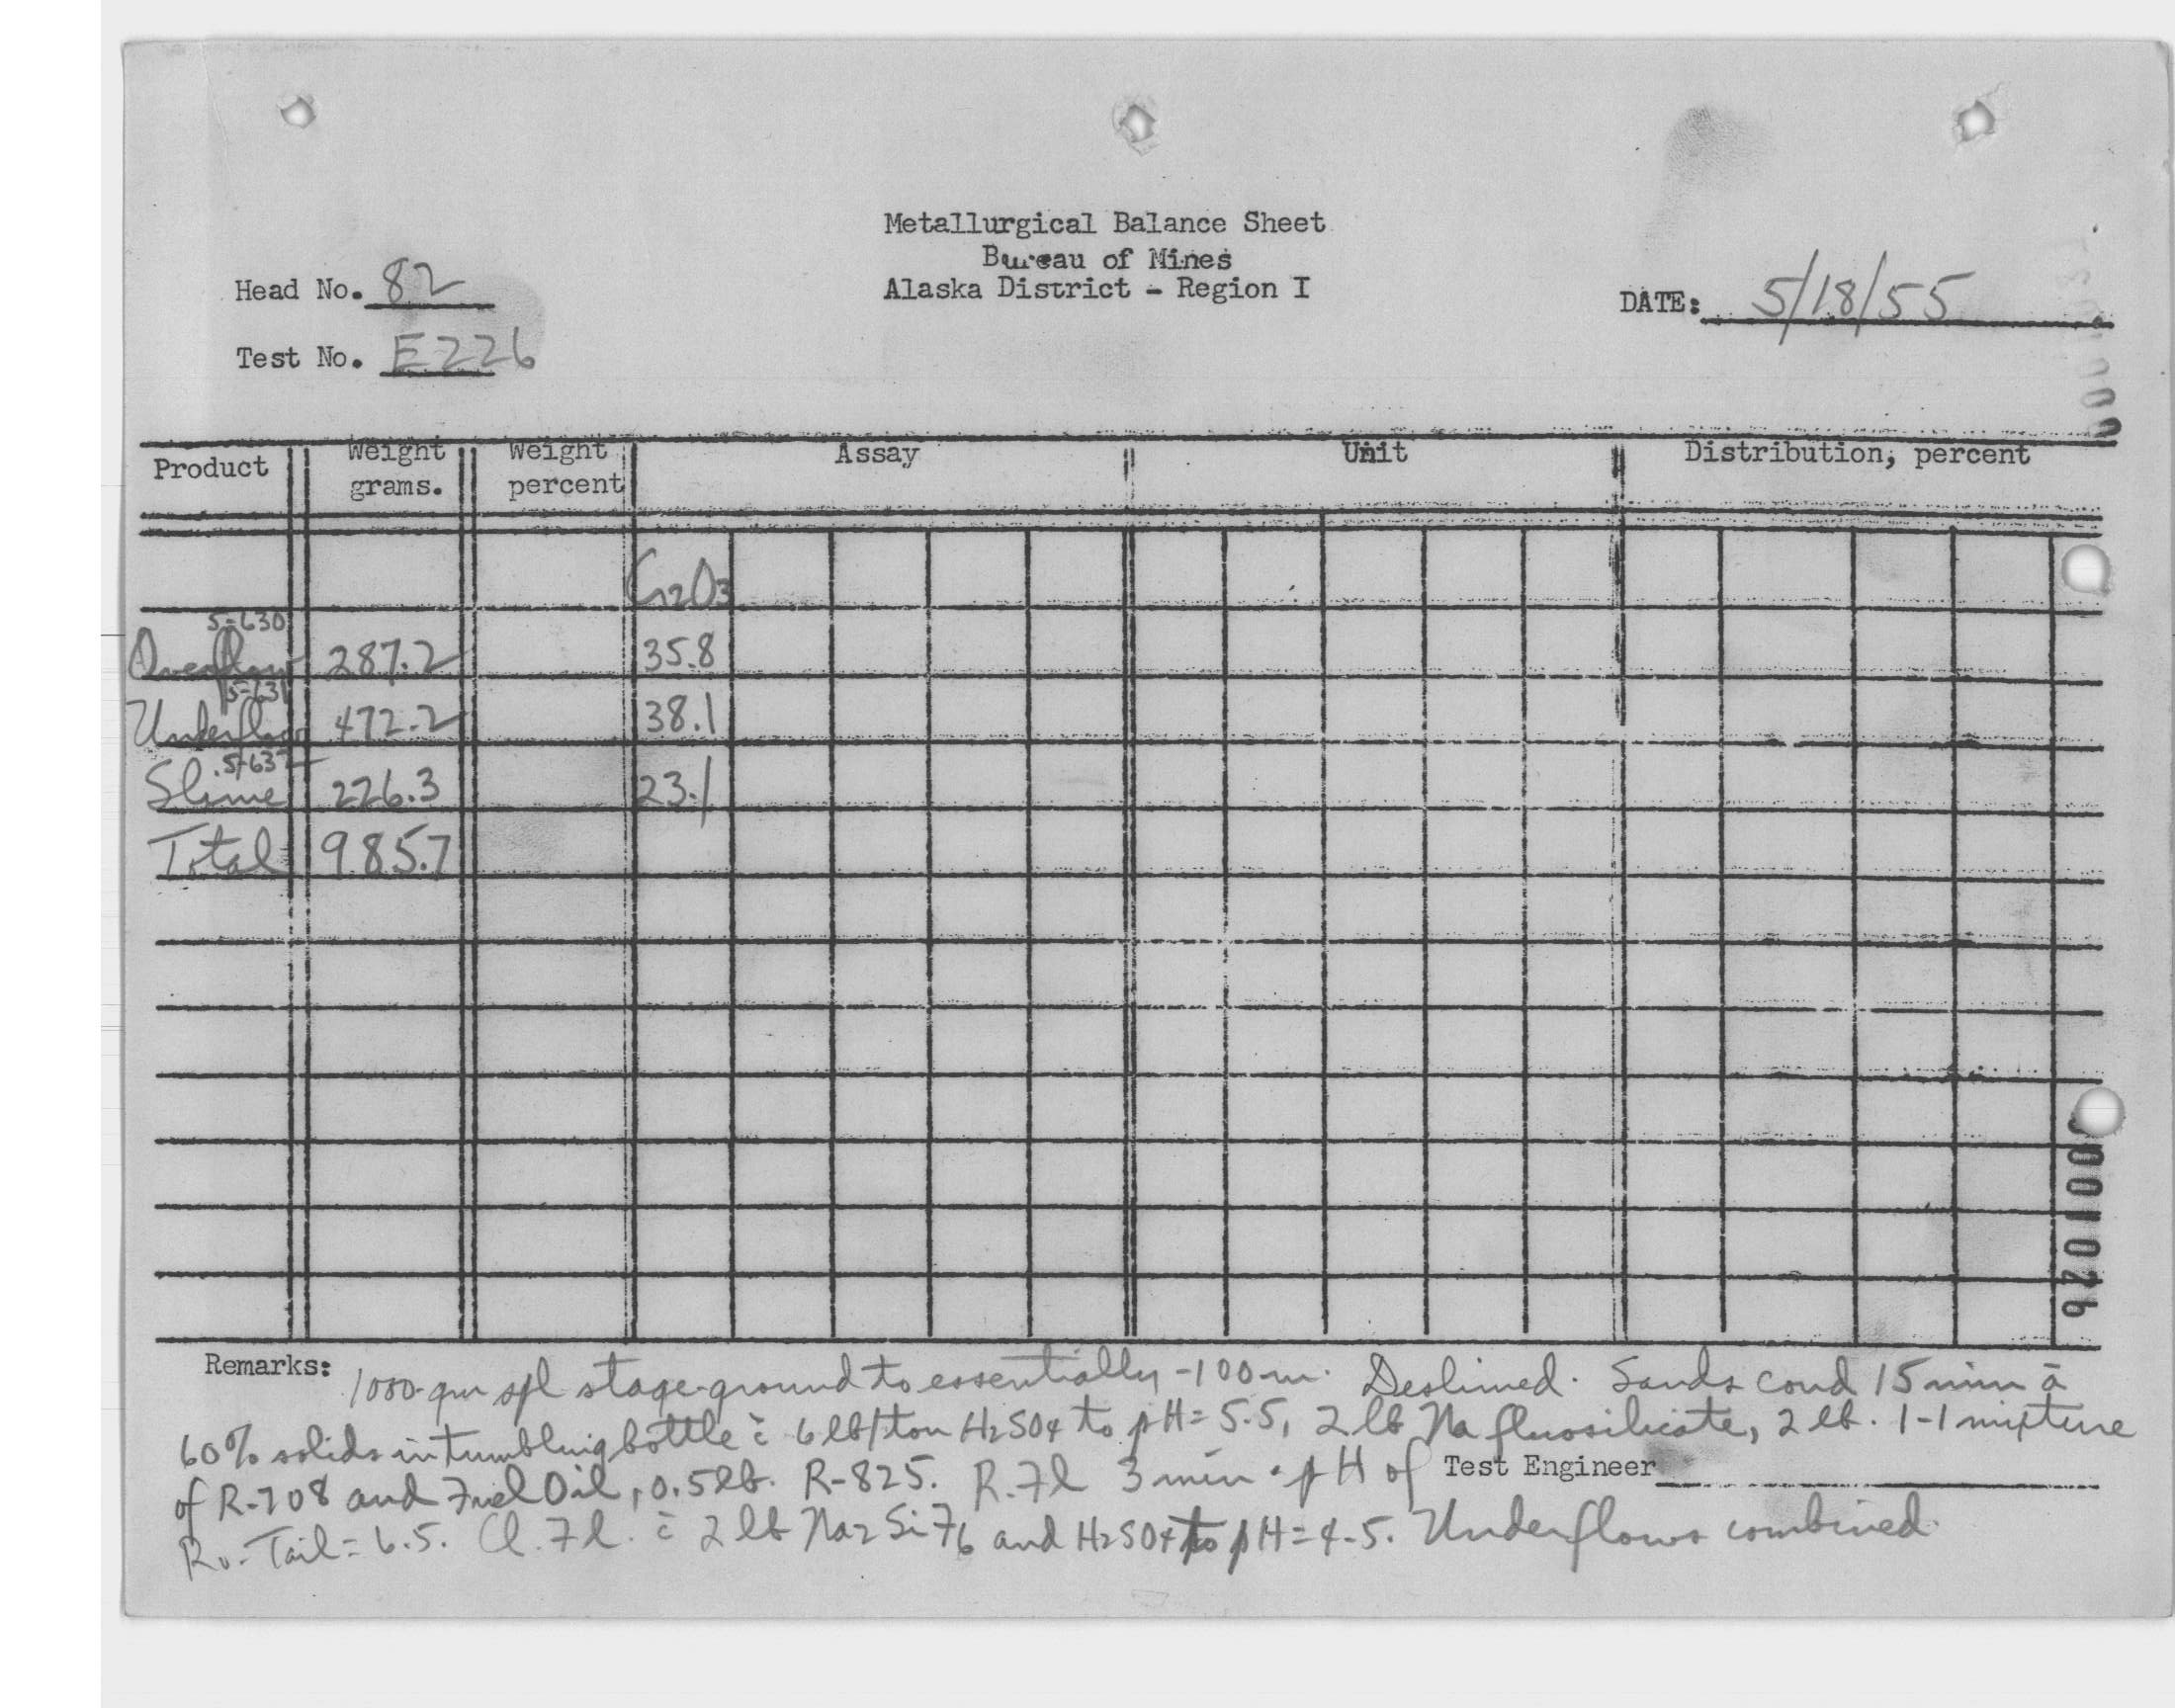 Metallurgical Balance Sheet
Bureau of Mines
Alaska District - Region I
Head No. 82
DATE: 5/18/55
Test No. E226
Product Weight grams. Weight percent Assay Unit Distribution, percent
Cr2O3
5-630
Overflow 287.2 35.8
5-631
Underflow 472.2 38.1
5-632
Slime 226.3 23.1
Total 985.7
Remarks: 1000-gm spl stage-ground to essentially -100-m. Deslimed. Sands cond 15 min a
60% solids in tumbling bottle c̄ 6 lb/ton H2SO4 to pH=5.5, 2 lb Na fluosilicate, 2 lb. 1-1 mixture
of R-708 and Fuel Oil, 0.5 lb. R-825. R. Fl 3 min. pH of
Test Engineer
Ro-Tail=6.5. Cl. Fl. c̄ 2 lb Na2SiF6 and H2SO4 to pH=4-5. Underflows combined.
001026